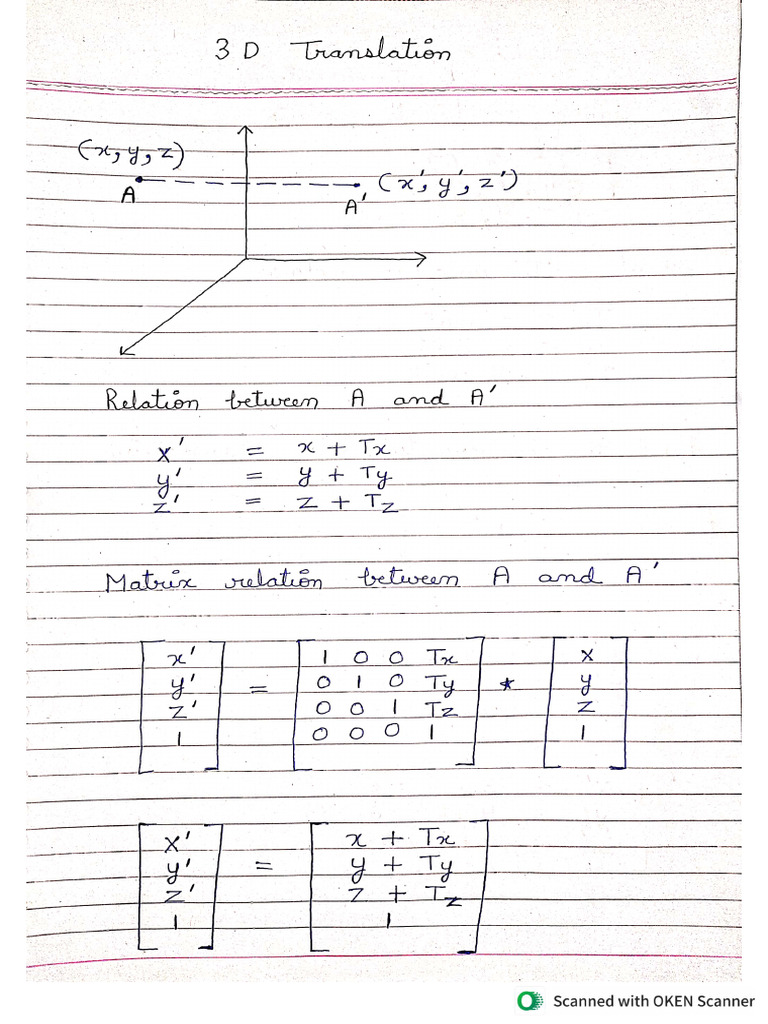 3 D Translation
(x, y, z)
A
(x', y', z')
A'
Relation between A and A'
x' = x + Tx
y' = y + Ty
z' = z + Tz
Matrix relation between A and A'
x' 1 0 0 Tx x
y' = 0 1 0 Ty * y
z' 0 0 1 Tz z
1 0 0 0 1 1
x' x + Tx
y' = y + Ty
z' z + Tz
1 1
Scanned with OKEN Scanner